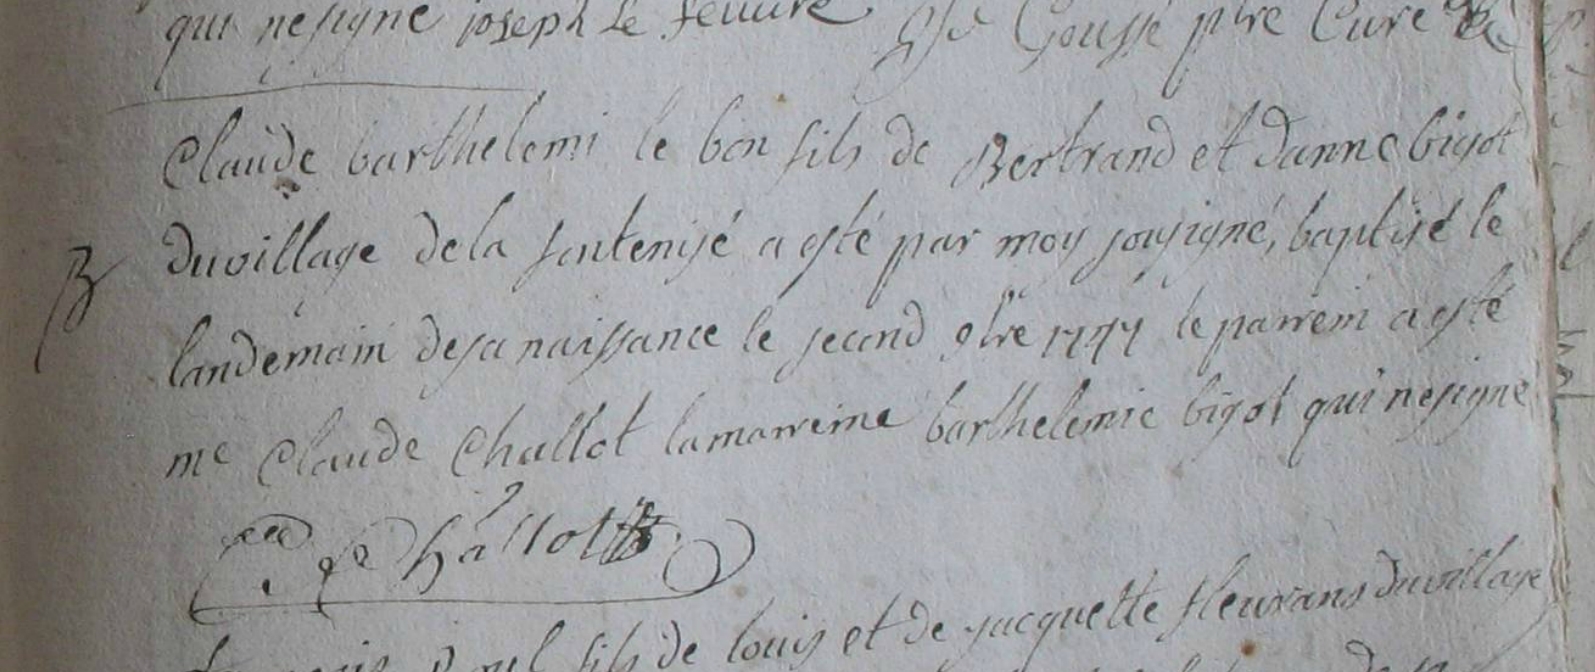 qui nesigne joseph Le feuure Goussé ptre Curé
Claude barthelemi le bon fils de Bertrand et danne bigot
B
duvillage dela fontenisé a esté par moy sousigné, baptisé le
landemain desa naissance le second 9bre 1747 le parrein a esté
me Claude Challot lamarreine barthelemie bigot qui nesigne
fils de louis et de jacquette fleurans duvillage